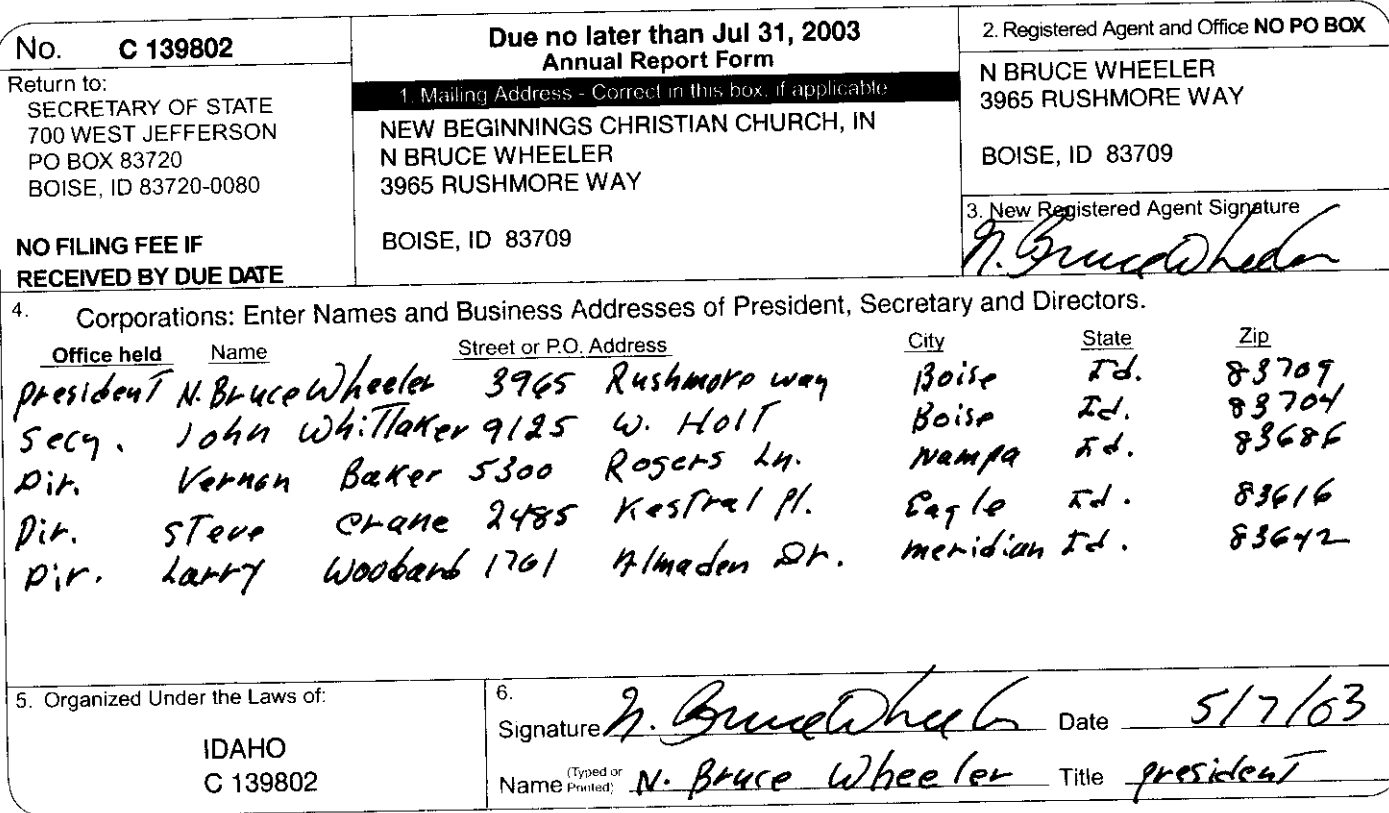 No. C 139802
Return to:
SECRETARY OF STATE
700 WEST JEFFERSON
PO BOX 83720
BOISE, ID 83720-0080
NO FILING FEE IF
RECEIVED BY DUE DATE
Due no later than Jul 31, 2003
Annual Report Form
1. Mailing Address - Correct in this box, if applicable
NEW BEGINNINGS CHRISTIAN CHURCH, IN
N BRUCE WHEELER
3965 RUSHMORE WAY
BOISE, ID 83709
2. Registered Agent and Office NO PO BOX
N BRUCE WHEELER
3965 RUSHMORE WAY
BOISE, ID 83709
3. New Registered Agent Signature
N. Bruce Wheeler
4. Corporations: Enter Names and Business Addresses of President, Secretary and Directors.
Office held Name Street or P.O. Address City State Zip
president N. Bruce Wheeler 3965 Rushmore way Boise Id. 83709
Secy. John Whittaker 9125 W. Holt Boise Id. 83704
Dir. Vernon Baker 5300 Rogers Ln. Nampa Id. 83686
Dir. Steve Crane 2485 Kestral Pl. Eagle Id. 83616
Dir. Larry Woobard 1761 Almaden Dr. meridian Id. 83642
5. Organized Under the Laws of:
IDAHO
C 139802
6.
Signature N. Bruce Wheeler Date 5/7/03
Name (Typed or Printed) N. Bruce Wheeler Title president